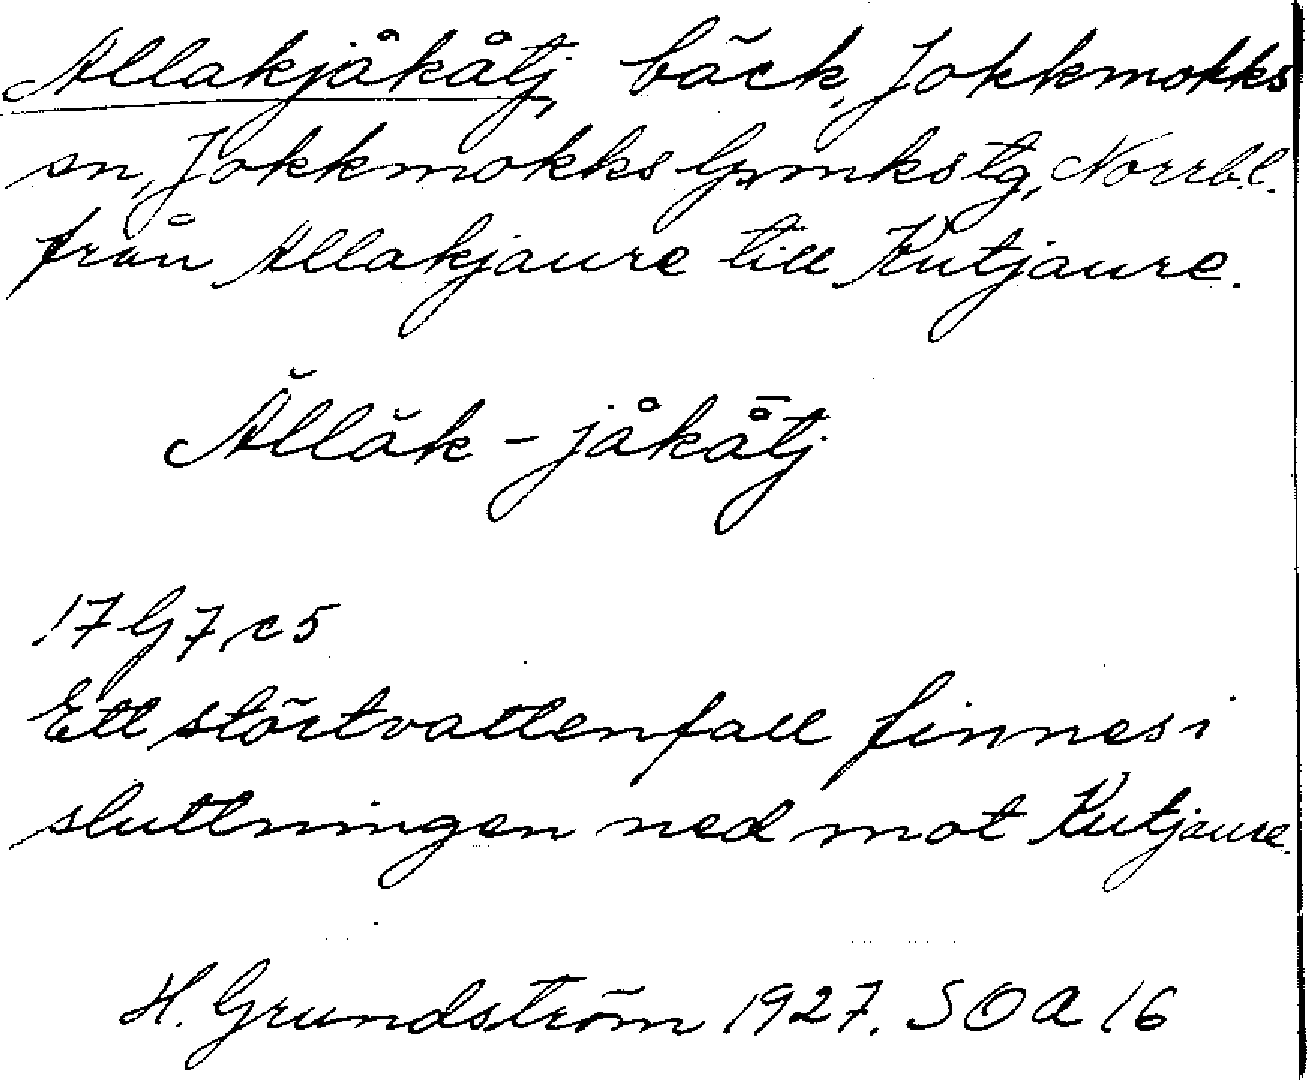 Allakjåkåtj, bäck, Jokkmokks
sn, Jokkmokks lpmkstg, Norrb.l.
från Allakjaure till Kutjaure.
Ăllăk-jåkå̄tj
17 G 7 c 5
Ett störtvattenfall finnes i
sluttningen ned mot Kutjaure.
H. Grundström 1927. SOA 16